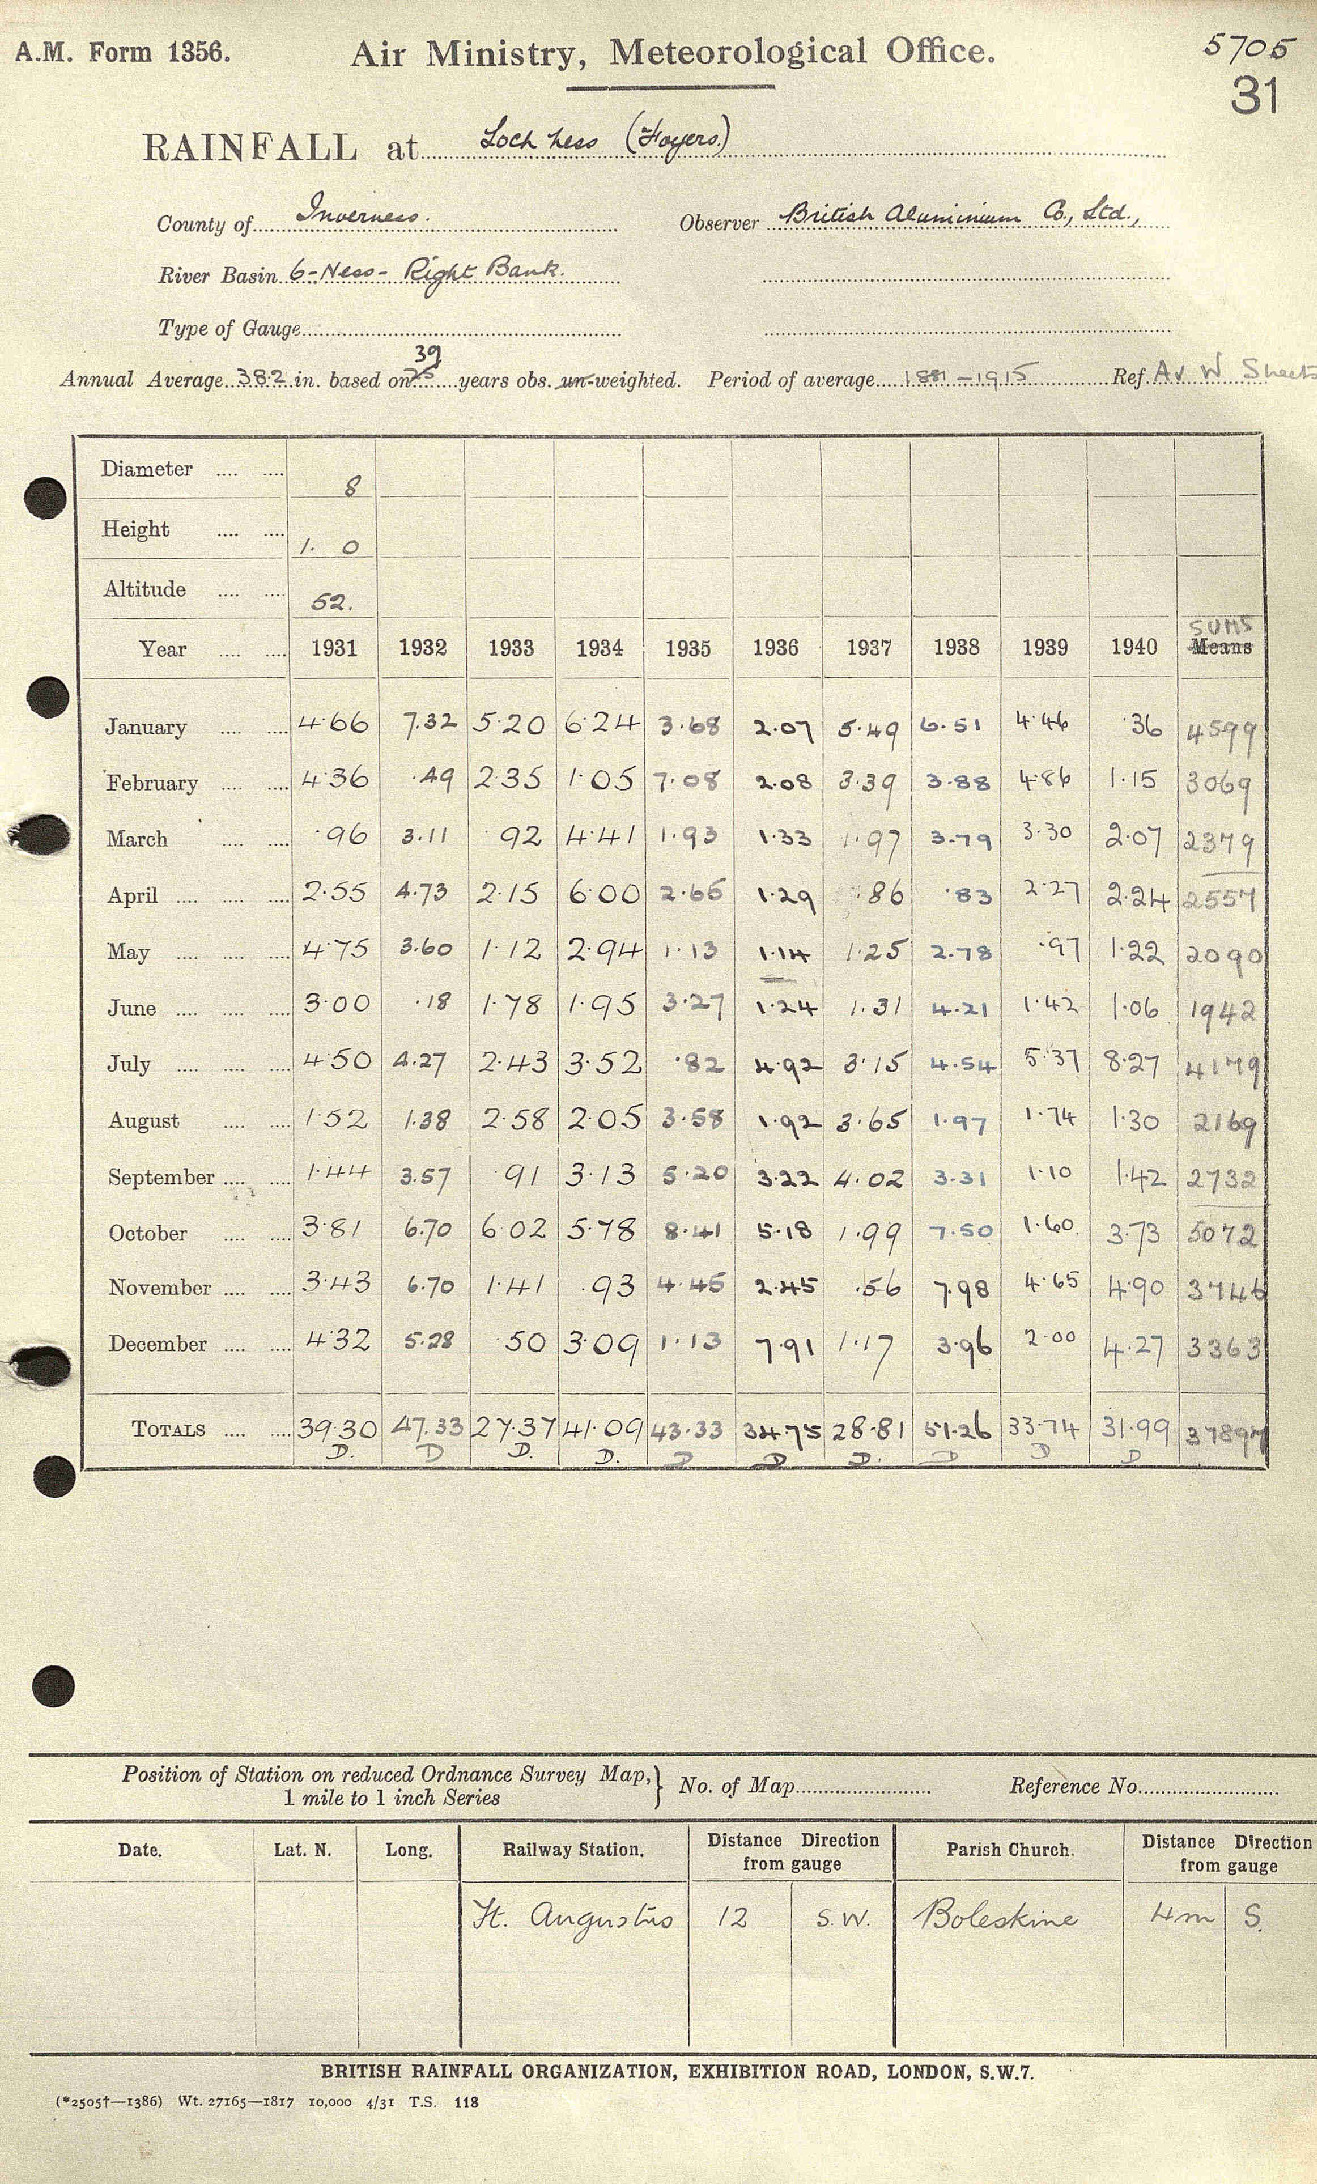 A.M. Form 1356. Air Ministry, Meteorological Office. 5705
31
RAINFALL at Loch Ness (Foyers)
County of Inverness. Observer British Aluminium Co., Ltd.,
River Basin 6-Ness- Right Bank.
Type of Gauge
39
Annual Average 38.2 in. based on 25 years obs. un-weighted. Period of average 1881-1915 Ref. Av W Sheets
Diameter 8
Height 1. 0
Altitude 52.
sums
Year 1931 1932 1933 1934 1935 1936 1937 1938 1939 1940 Means
January 4.66 7.32 5.20 6.24 3.68 2.07 5.49 6.51 4.46 .36 4599
February 4.36 .49 2.35 1.05 7.08 2.08 3.39 3.88 4.86 1.15 3069
March .96 3.11 .92 4.41 1.93 1.33 1.97 3.79 3.30 2.07 2379
April 2.55 4.73 2.15 6.00 2.65 1.29 .86 .83 2.27 2.24 2557
May 4.75 3.60 1.12 2.94 1.13 1.14 1.25 2.78 .97 1.22 2090
June 3.00 .18 1.78 1.95 3.27 1.24 1.31 4.21 1.42 1.06 1942
July 4.50 4.27 2.43 3.52 .82 4.92 3.15 4.54 5.37 8.27 4179
August 1.52 1.38 2.58 2.05 3.58 1.92 3.65 1.97 1.74 1.30 2169
September 1.44 3.57 .91 3.13 5.20 3.22 4.02 3.31 1.10 1.42 2732
October 3.81 6.70 6.02 5.78 8.41 5.18 1.99 7.50 1.60 3.73 5072
November 3.43 6.70 1.41 .93 4.45 2.45 .56 7.98 4.65 4.90 3746
December 4.32 5.28 .50 3.09 1.13 7.91 1.17 3.96 2.00 4.27 3363
TOTALS 39.30 47.33 27.37 41.09 43.33 34.75 28.81 51.26 33.74 31.99 37897
D. D D. D. D D D. D D D
Position of Station on reduced Ordnance Survey Map, } No. of Map Reference No.
1 mile to 1 inch Series
Date. Lat. N. Long. Railway Station. Distance Direction from gauge Parish Church. Distance Direction from gauge
Ft. Augustus 12 S.W. Boleskine 4m S.
BRITISH RAINFALL ORGANIZATION, EXHIBITION ROAD, LONDON, S.W.7.
(*2505†—1386) Wt. 27165—1817 10,000 4/31 T.S. 118